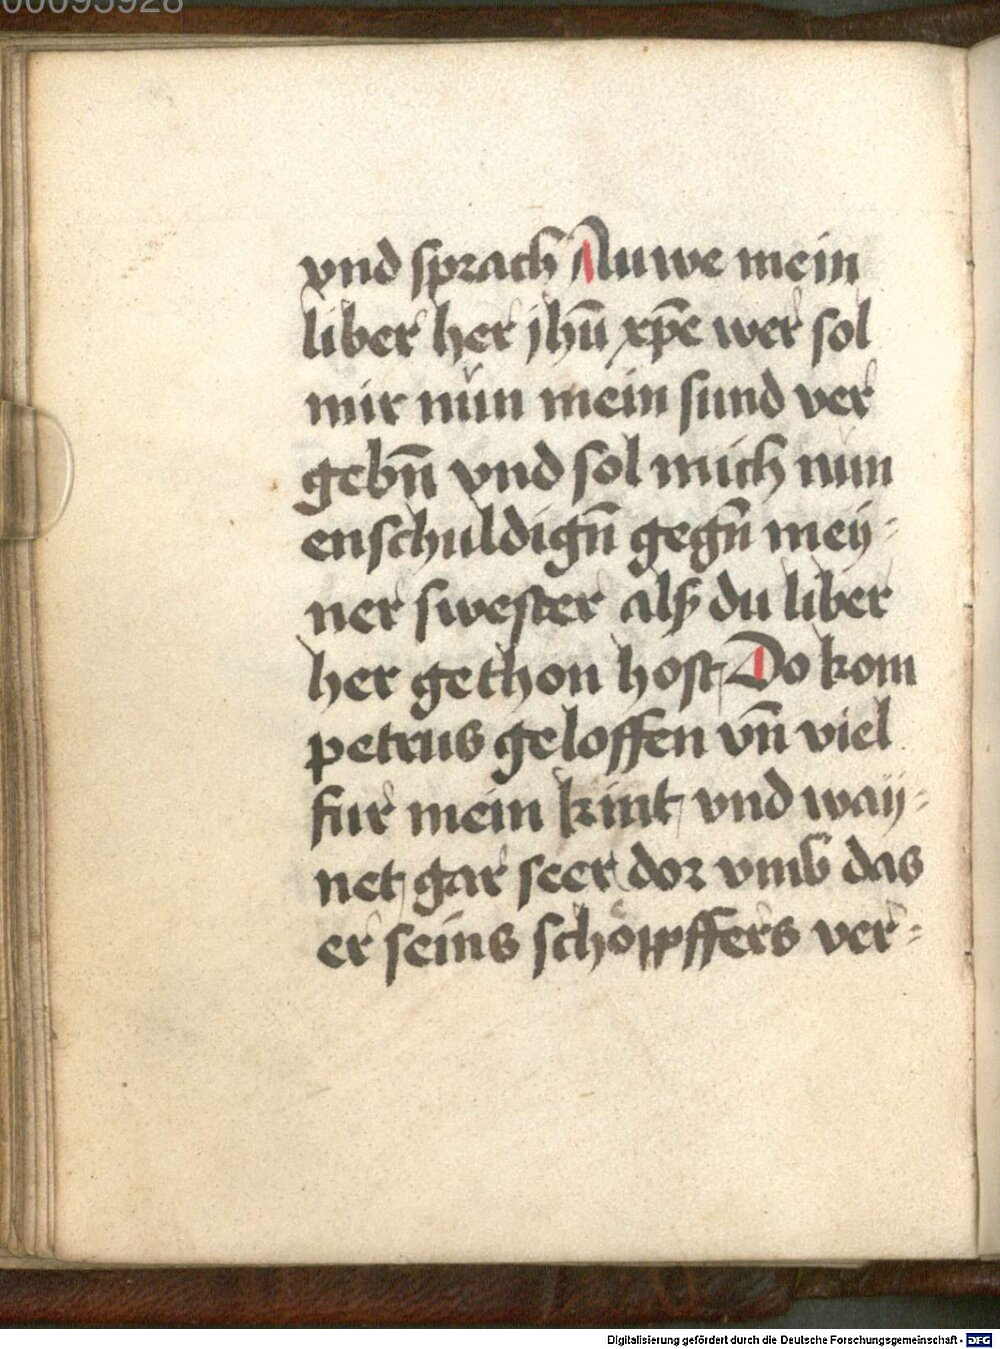 00095928
vnd sprach Auwe mein
liber her jhū xp̄e wer sol
mir nŭn mein sund ver
gebn̄ vnd sol mich nŭn
enschuldign̄ gegn̄ mey-
ner swester alß du liber
her gethon host, Do kom
petrus geloffen vn̄ viel
fur mein kint, vnd way-
net, gar seer, dor vmb das
er seins schöppffers ver-
Digitalisierung gefördert durch die Deutsche Forschungsgemeinschaft - DFG